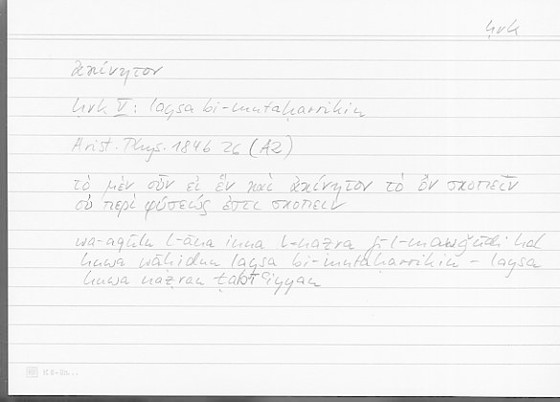 ḥrk
ἀκίνητον
ḥrk V: laysa bi-mutaḥarrikin
Arist. Phys. 184b 26 (A2)
τὸ μὲν οὖν εἰ ἓν καὶ ἀκίνητον τὸ ὂν σκοπεῖν
οὐ περὶ φύσεώς ἐστι σκοπεῖν
wa-aqūlu l-āna inna l-naẓra fī l-mawǧūdi hal
huwa wāḥidun laysa bi-mutaḥarrikin – laysa
huwa naẓran ṭabīʿiyyan